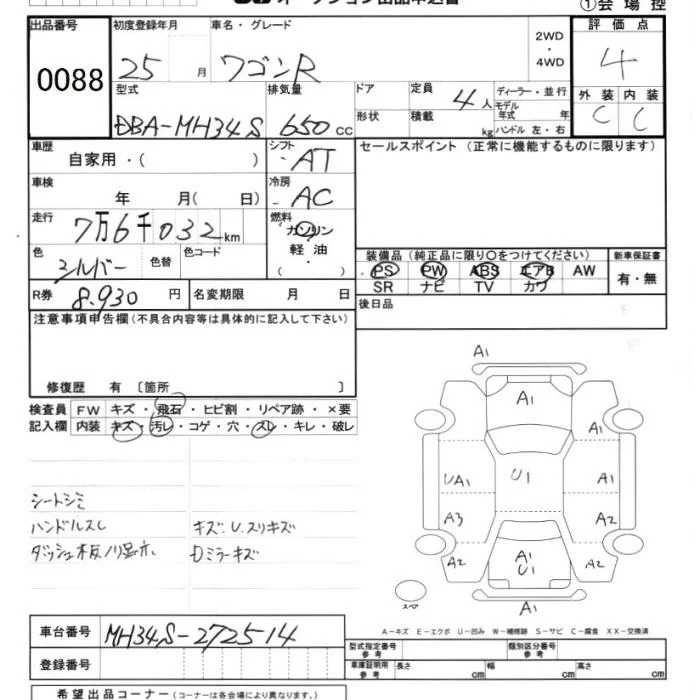 ①会場控
出品番号 初度登録年月 車名・グレード 評価点
0088 25 月 ワゴンR 2WD ・ 4WD 4
型式 排気量 ドア 定員 ディーラー・並行 外装 内装
DBA-MH34S 650 cc 形状 積載 4 人 kg モデル年式 年 ハンドル 左・右 C C
車歴 シフト セールスポイント (正常に機能するものに限ります)
自家用・( ) AT
車検 冷房
年 月( 日) AC
走行 燃料
7万6千032km ガソリン
色 色替 色コード 軽油
シルバー ( ) 装備品 (純正品に限り○をつけてください) 新車保証書
PS PW ABS エアB AW 有・無
R券 8.930 円 名変期限 月 日 SR ナビ TV カワ
注意事項申告欄(不具合内容等は具体的に記入して下さい) 後日品
修復歴 有 〔箇所 〕
検査員 FW キズ・飛石・ヒビ割・リペア跡・×要
記入欄 内装 キズ・汚レ・コゲ・穴・スレ・キレ・破レ
シートシミ
ハンドルスレ キズ、U、スリキズ
Dミラーキズ
A1
A1
A1
UA1 U1 A1
A3 A2
A2 A1 U1 A2
スペア
A-キズ E-エクボ U-凹み W-補修跡 S-サビ C-腐食 XX-交換済
車台番号 MH34S-272514
登録番号 型式指定番号 参考 類別区分番号 参考
車庫証明用 参考 長さ cm 幅 cm 高さ cm
希望出品コーナー (コーナーは各会場により異なります。)